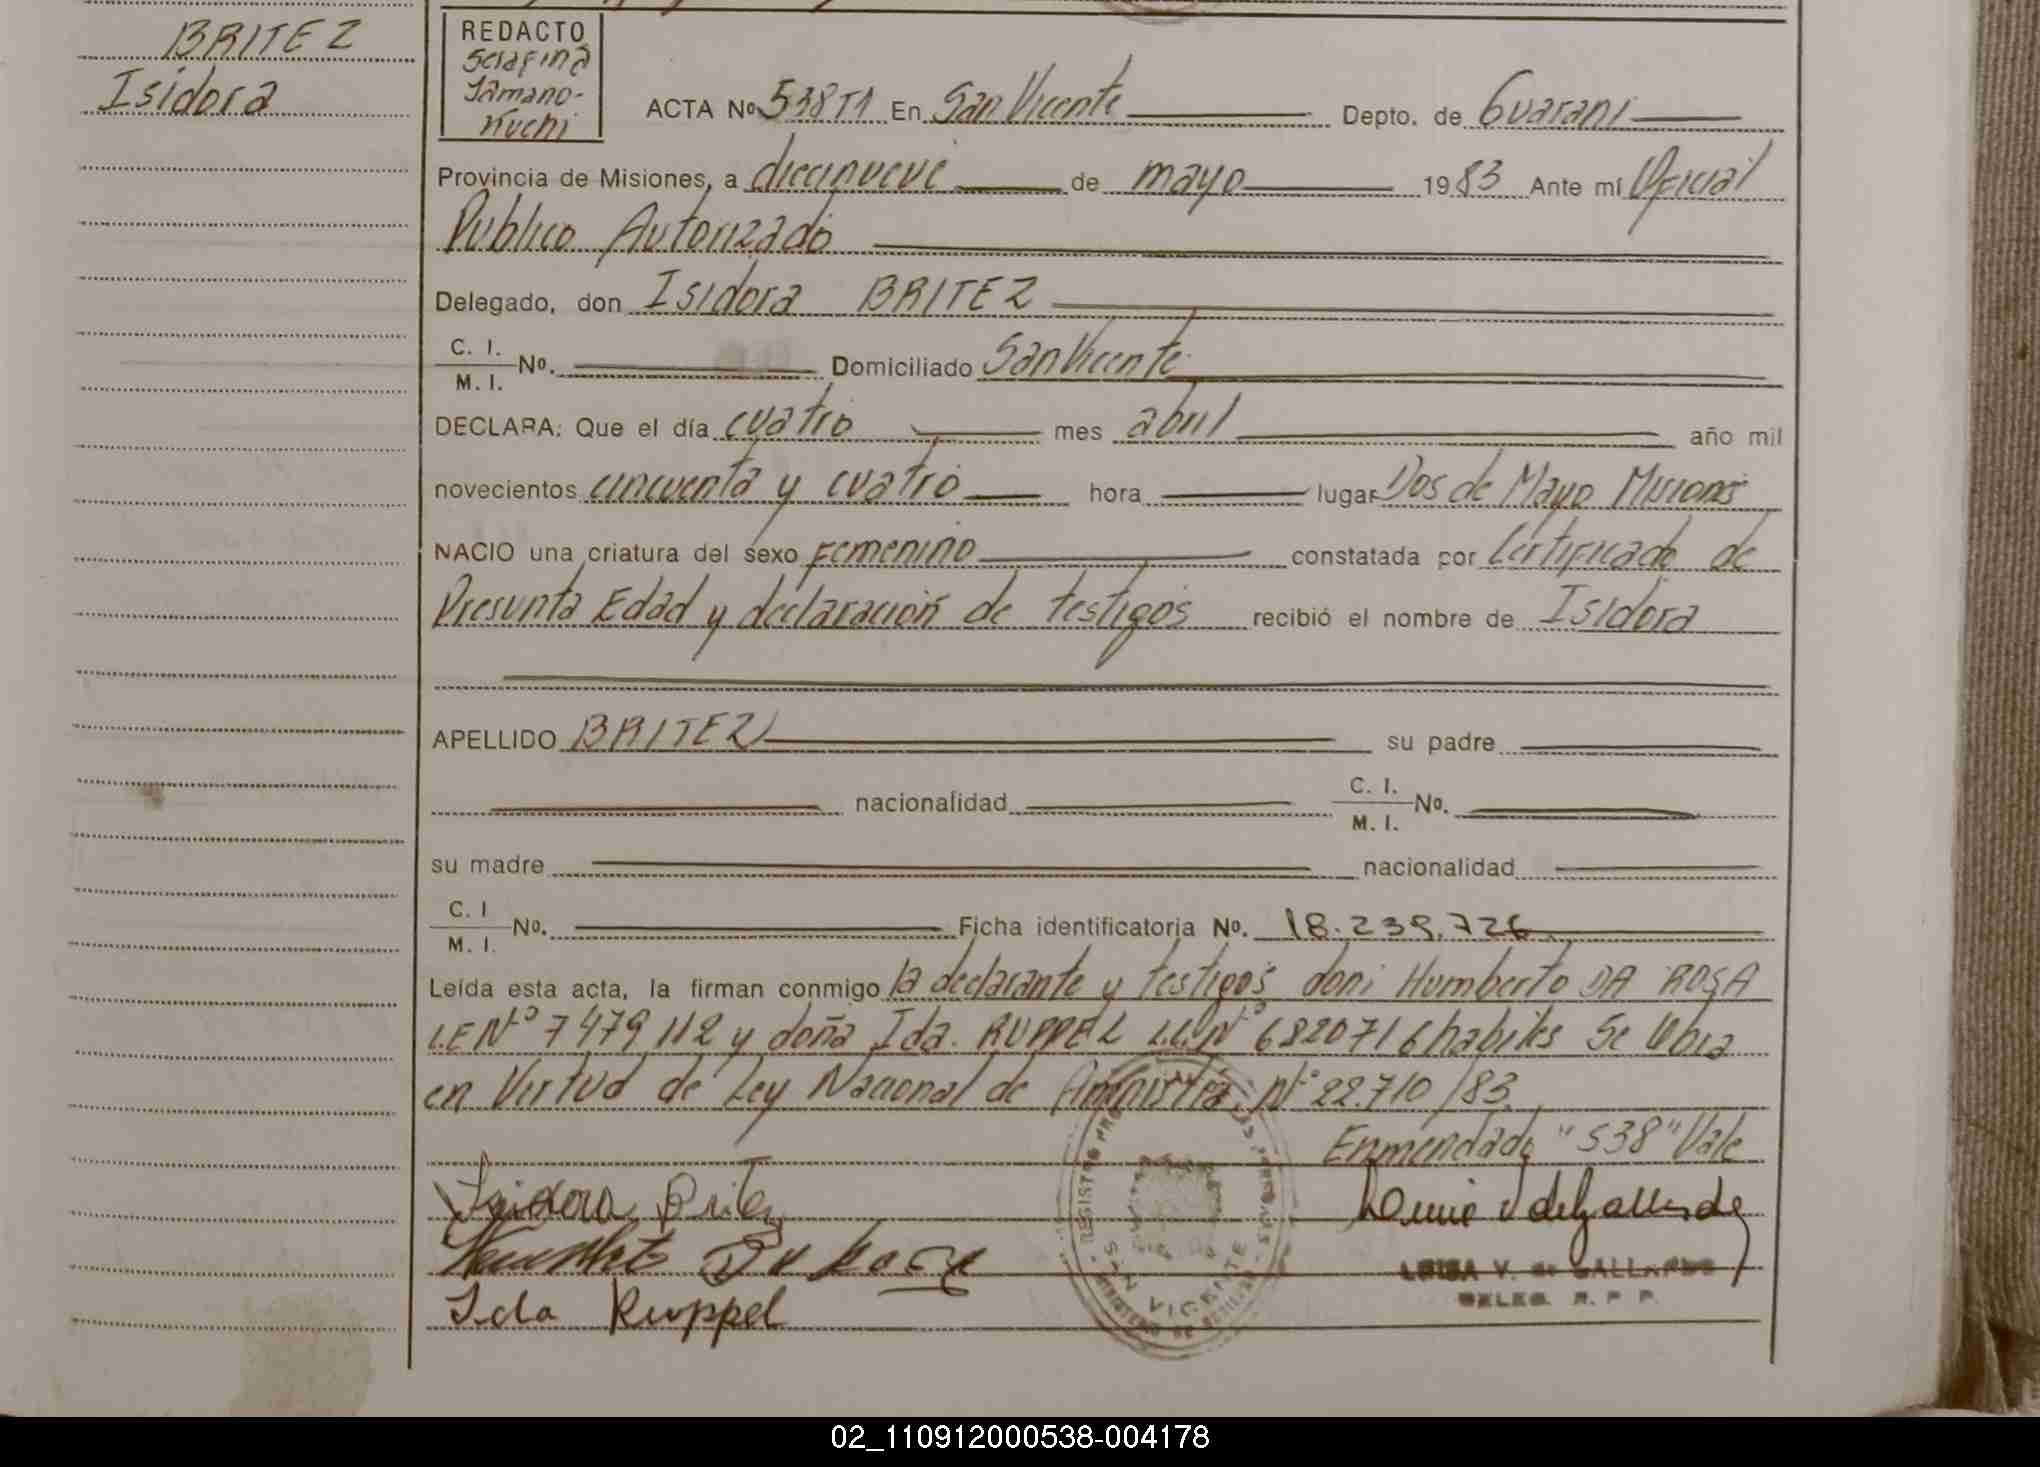 BRITEZ
Isidora
REDACTO
Serafina
Tamano-
Kuchi
ACTA No. 538T1 En San Vicente Depto. de Guarani
Provincia de Misiones, a diecinueve de mayo 1983 Ante mí Oficial
Publico Autorizado
Delegado, don Isidora BRITEZ
C. I.
M. I. No. Domiciliado San Vicente
DECLARA: Que el día cuatro mes abril año mil
novecientos cincuenta y cuatro hora lugar Dos de Mayo Misiones
NACIO una criatura del sexo Femenino constatada por Certificado de
Presunta Edad y declaración de testigos recibió el nombre de Isidora
APELLIDO BRITEZ su padre
nacionalidad C. I.
M. I. No.
su madre nacionalidad
C. I
M. I. No. Ficha identificatoria No. 18.239.726
Leída esta acta, la firman conmigo la declarante y testigos don: Humberto DA ROSA
L.E N° 7479112 y doña Ida. RUPPEL L.C. N° 6820716 habiles Se Labra
en Virtud de Ley Nacional de Amnistia N° 22.710/83.
Enmendado "538" Vale
Isidora Britez
Humberto Da Rosa
Ida Ruppel
SAN VICENTE
LUISA V. de GALLARDO
DELEG. R. P. P.
02_110912000538-004178